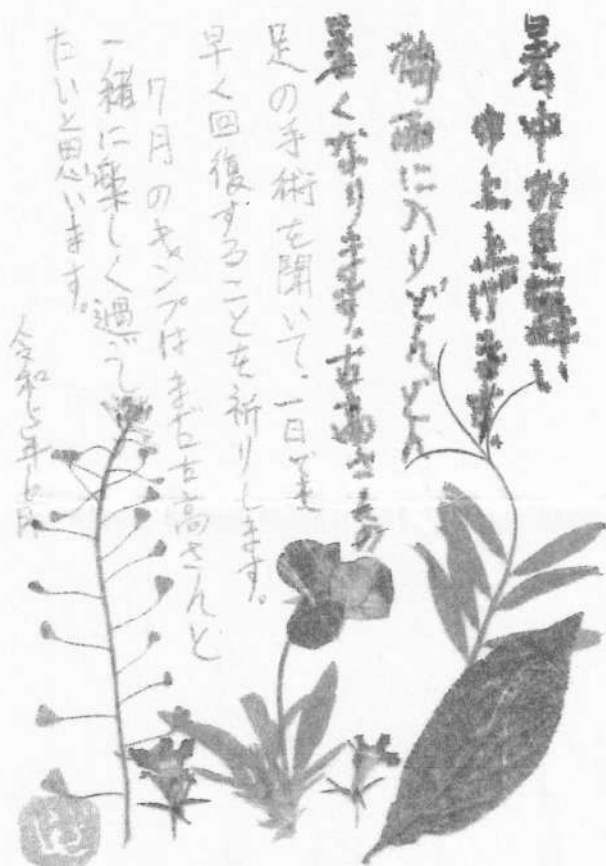 暑中お見舞い
申し上げます。
梅雨に入りどんどん
暑くなります。古高さんの
足の手術を聞いて、一日でも
早く回復することを祈りします。
7月のキャンプはまた古高さんと
一緒に楽しく過ごし
たいと思います。
令和5年6月